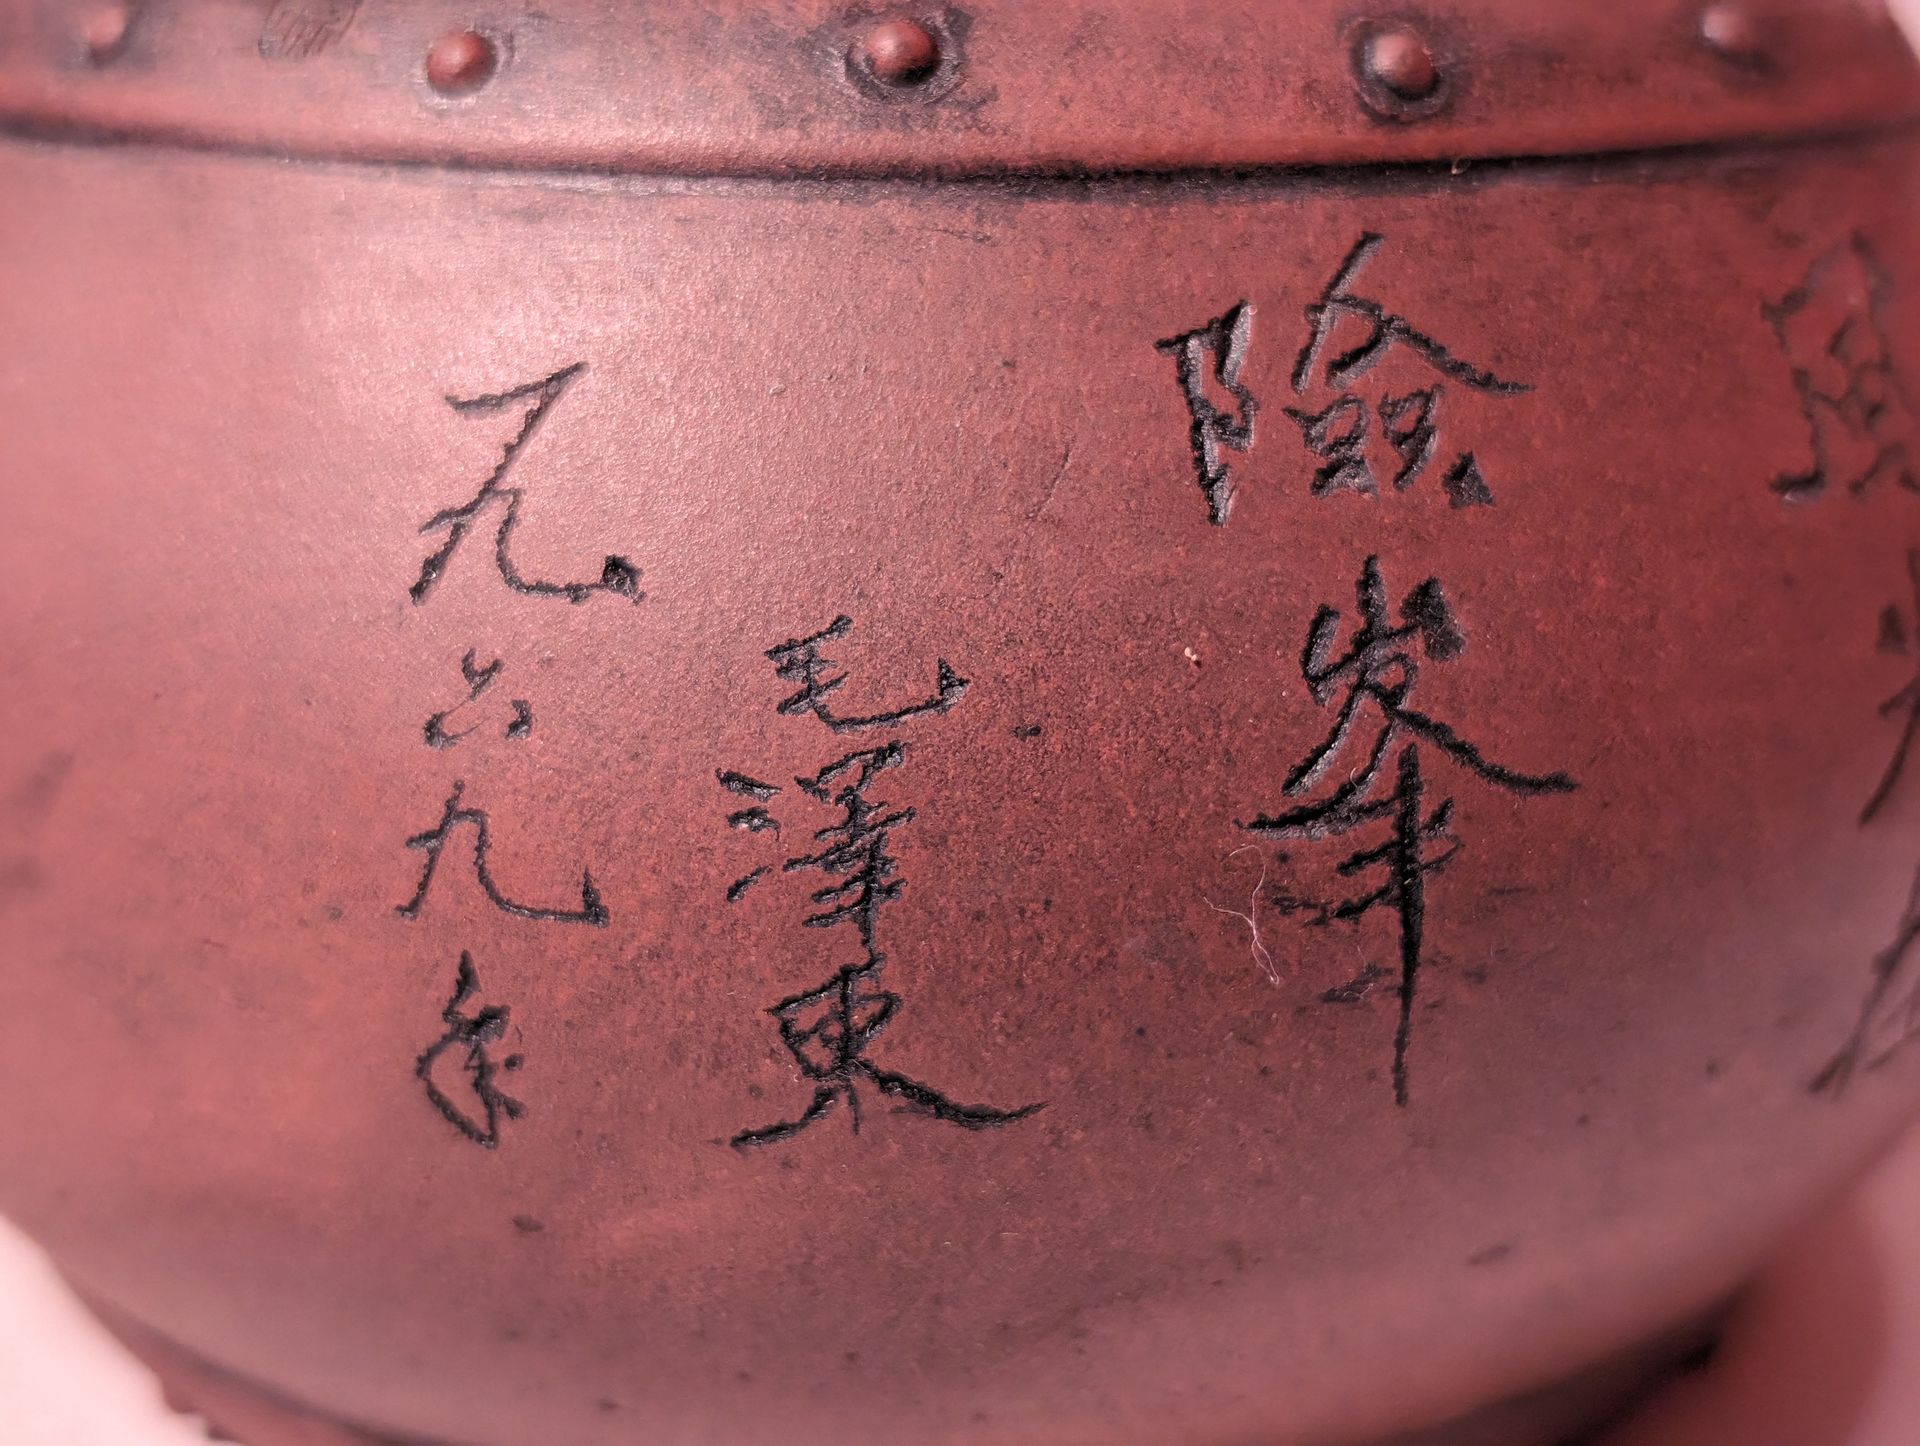 風
險峯
毛澤東
一九六九年